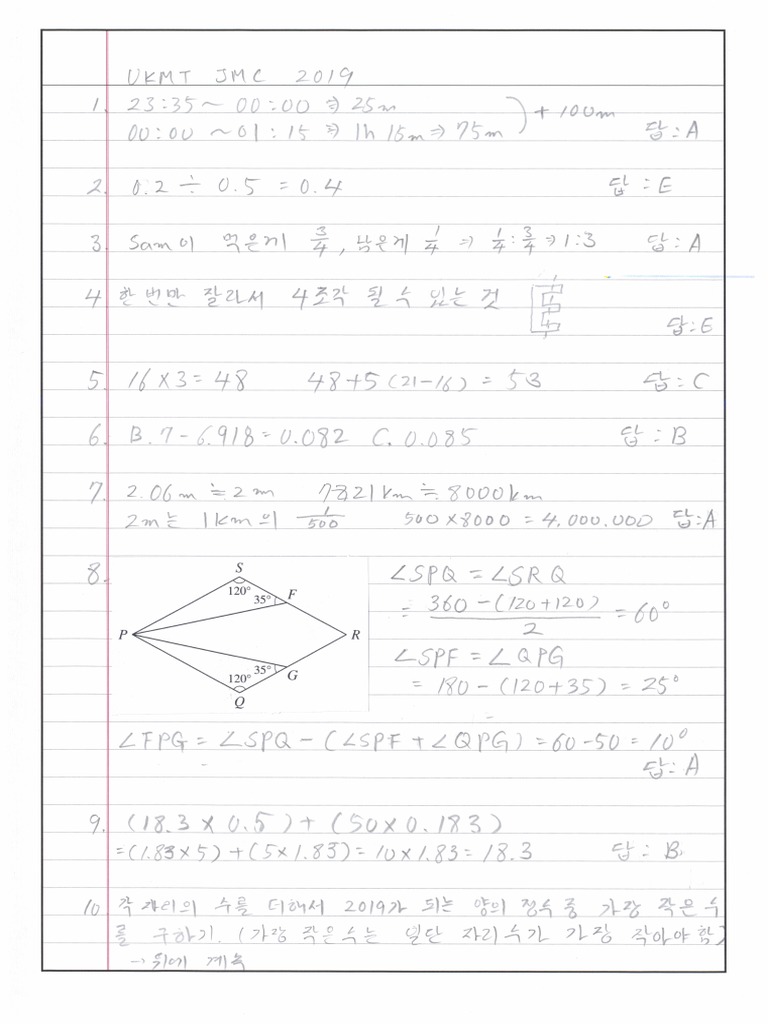 UKMT JMC 2019
1. 23:35 ~ 00:00 ⇒ 25m
00:00 ~ 01:15 ⇒ 1h 15m ⇒ 75m ) + 100m 답:A
2. 0.2 ÷ 0.5 = 0.4 답:E
3. Sam이 먹은게 3/4, 남은게 1/4 ⇒ 1/4:3/4 ⇒ 1:3 답:A
4 한 번만 잘라서 4조각 될 수 있는 것
답:E
5. 16×3=48 48+5(21-16)=53 답:C
6. B.7-6.918=0.082 C.0.085 답:B
7. 2.06m ≒ 2m 7821km ≒ 8000km
2m는 1km의 1/500 500×8000=4.000.000 답:A
8. ∠SPQ = ∠SRQ
= 360-(120+120) / 2 = 60°
∠SPF = ∠QPG
= 180-(120+35) = 25°
S
120° 35° F
P R
120° 35° G
Q
∠FPG = ∠SPQ - (∠SPF + ∠QPG) = 60-50 = 10°
답:A
9. (18.3 × 0.5) + (50 × 0.183)
=(1.83×5)+(5×1.83)=10×1.83=18.3 답:B
10 각 자리의 수를 더해서 2019가 되는 양의 정수 중 가장 작은 수
를 구하기. (가장 작은수는 일단 자리수가 가장 작아야 함)
→ 뒤에 계속